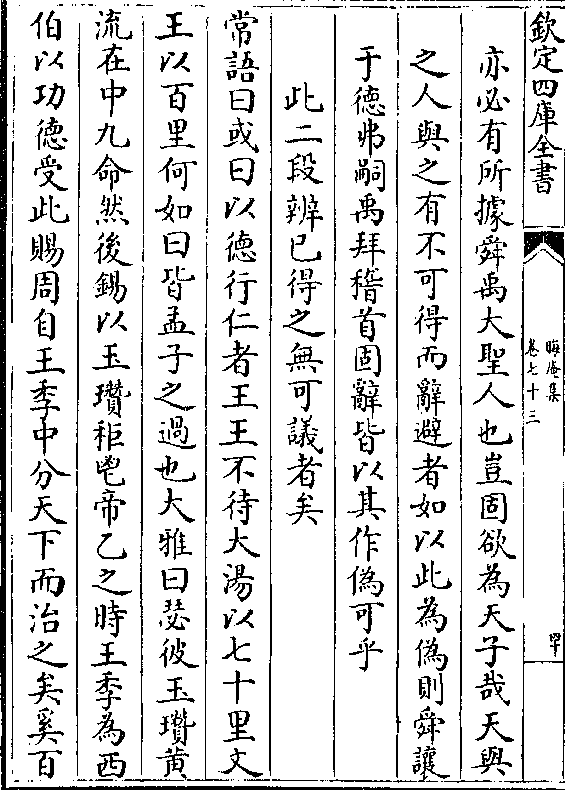 欽定四庫全書
晦庵集
卷七十三
亦必有所據舜禹大聖人也豈固欲為天子哉天與
之人與之有不可得而辭避者如以此為偽則舜讓
于德弗嗣禹拜稽首固辭皆以其作偽可乎
此二段辨已得之無可議者矣
常語曰或曰以德行仁者王王不待大湯以七十里文
王以百里何如曰皆孟子之過也大雅曰瑟彼玉瓚黄
流在中九命然後錫以玉瓚秬鬯帝乙之時王季為西
伯以功德受此賜周自王季中分天下而治之矣奚百